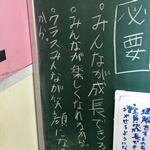 必要
・みんなが成長できる
・みんなが楽しくなれるから。
・クラスみんなが笑顔にな
から。